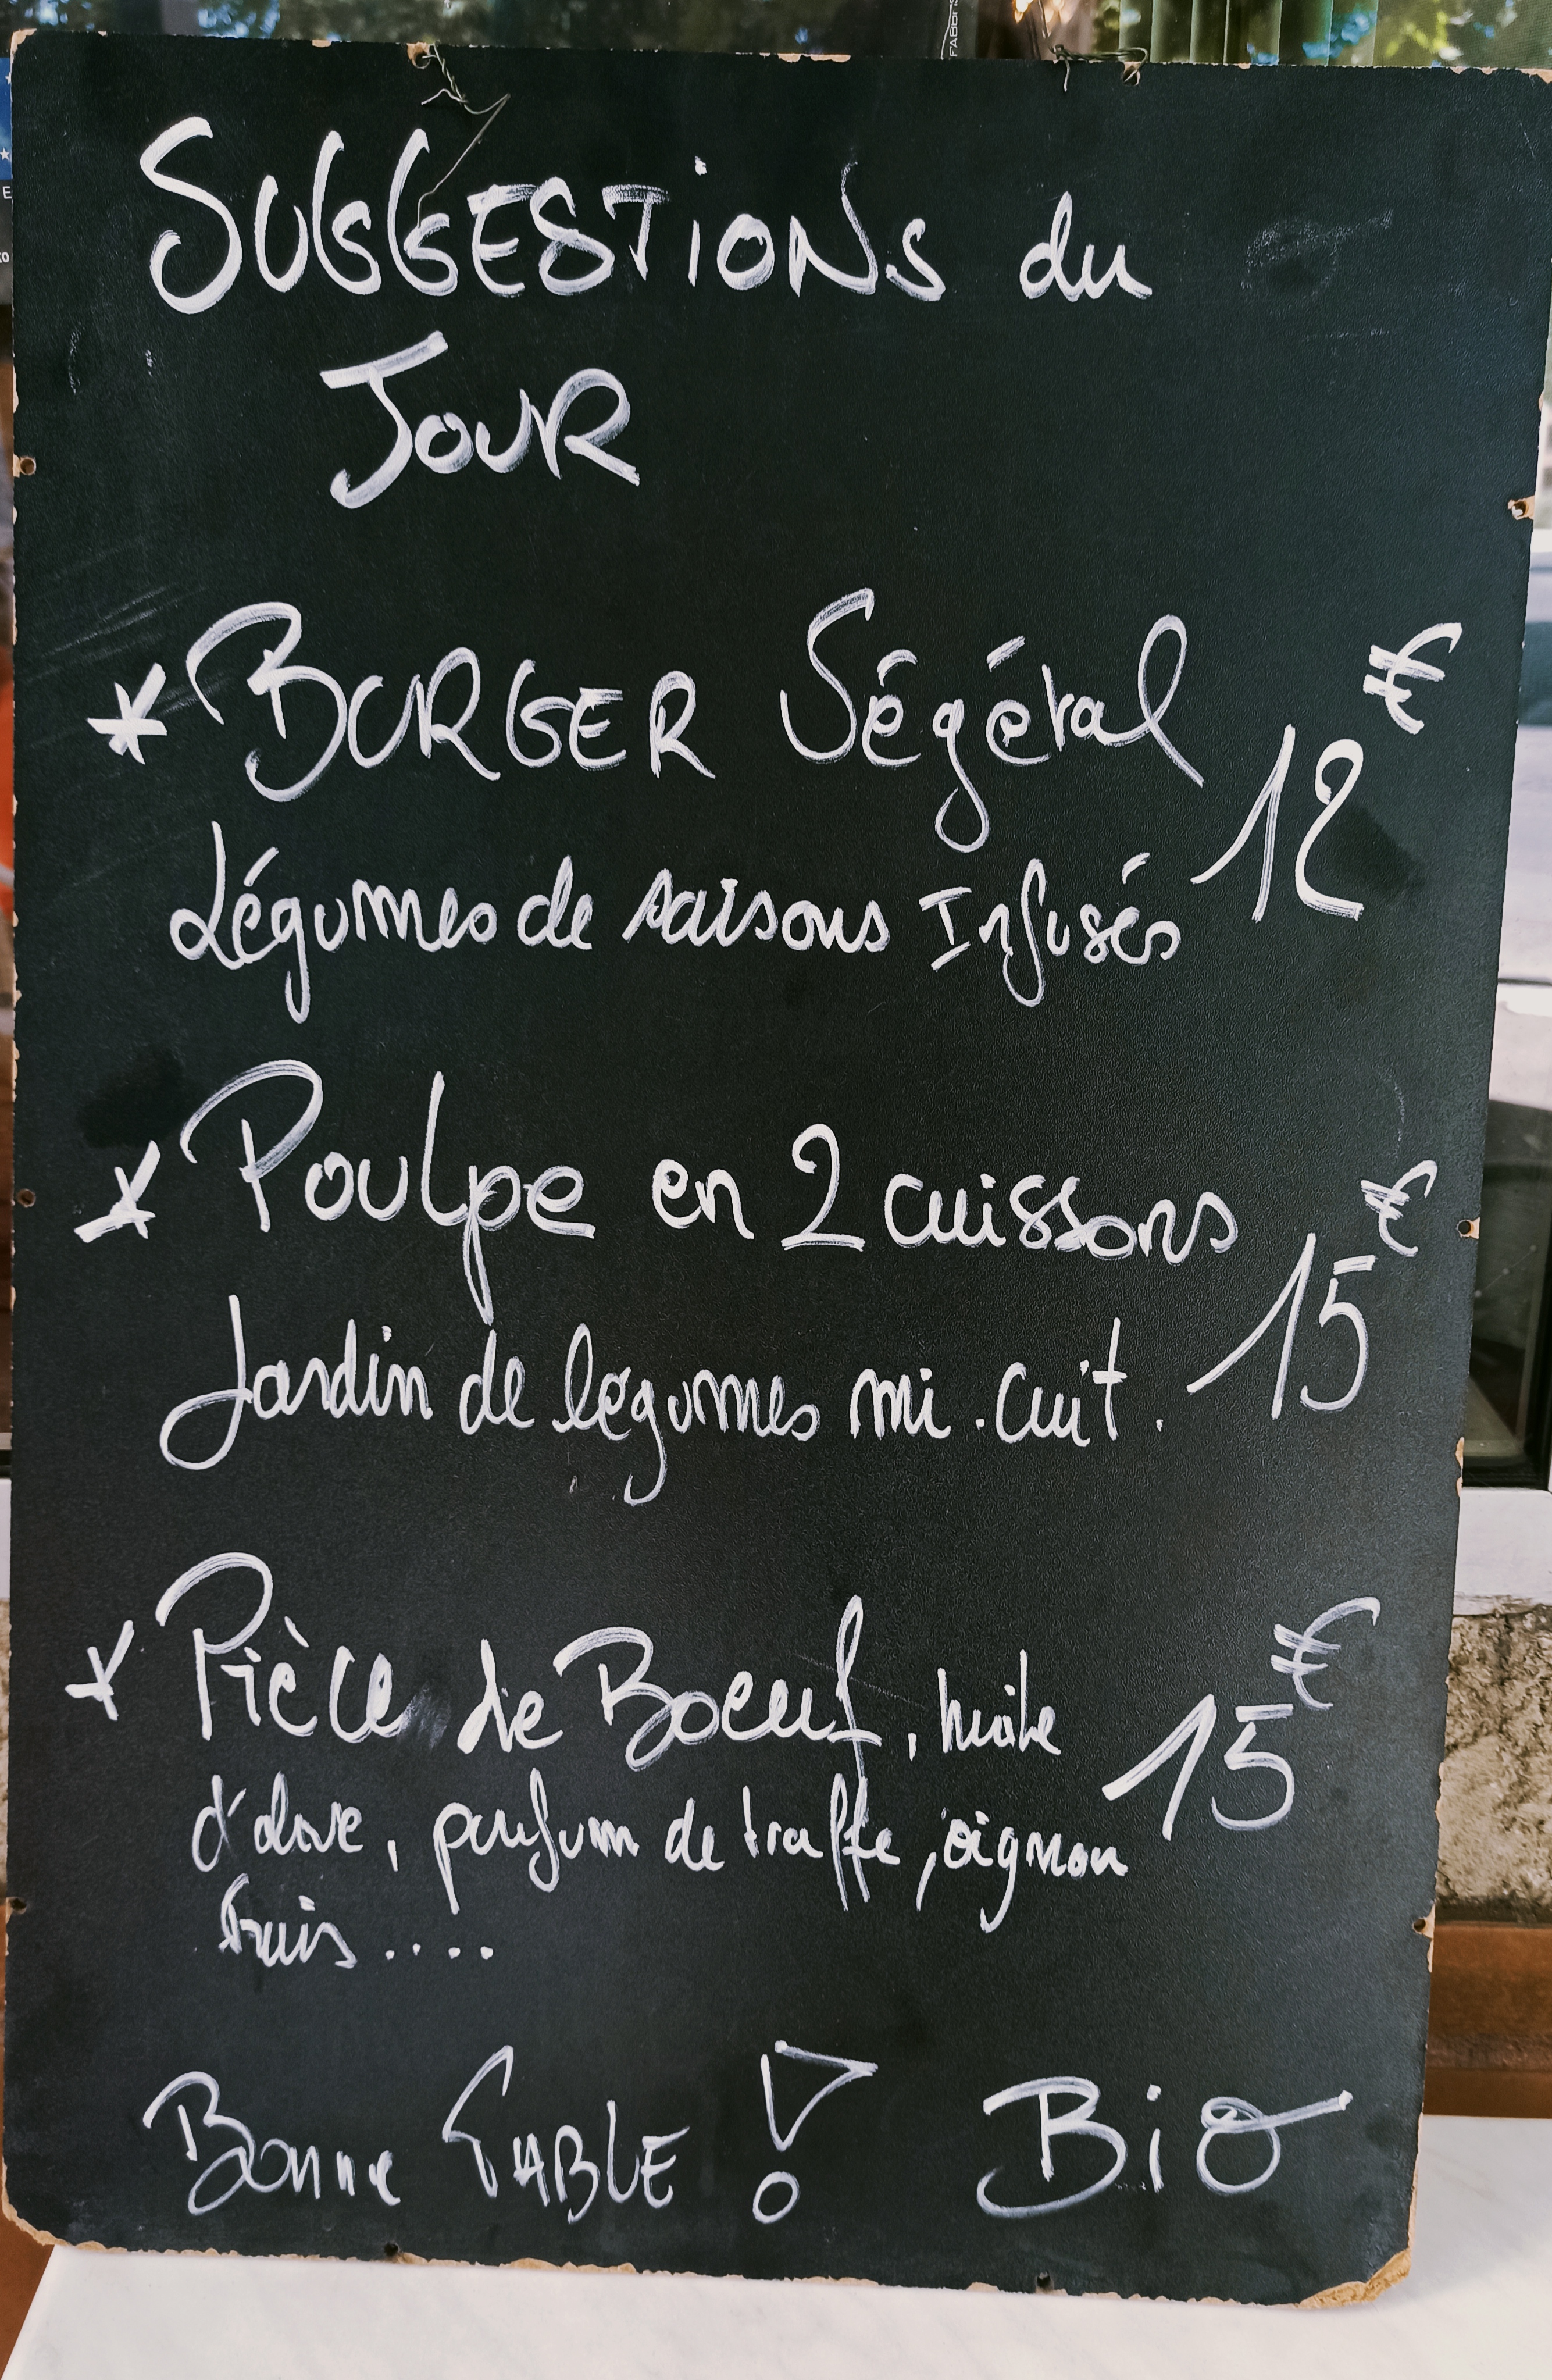 SUGGESTIONS du
JOUR
* BURGER Végétal 12€
Légumes de saisons Infusés
* Poulpe en 2 cuissons 15€
Jardin de légumes mi.cuit.
* Pièce de Boeuf, huile 15€
d'olive, parfum de truffe, oignon
frais....
Bonne TABLE ! BiO